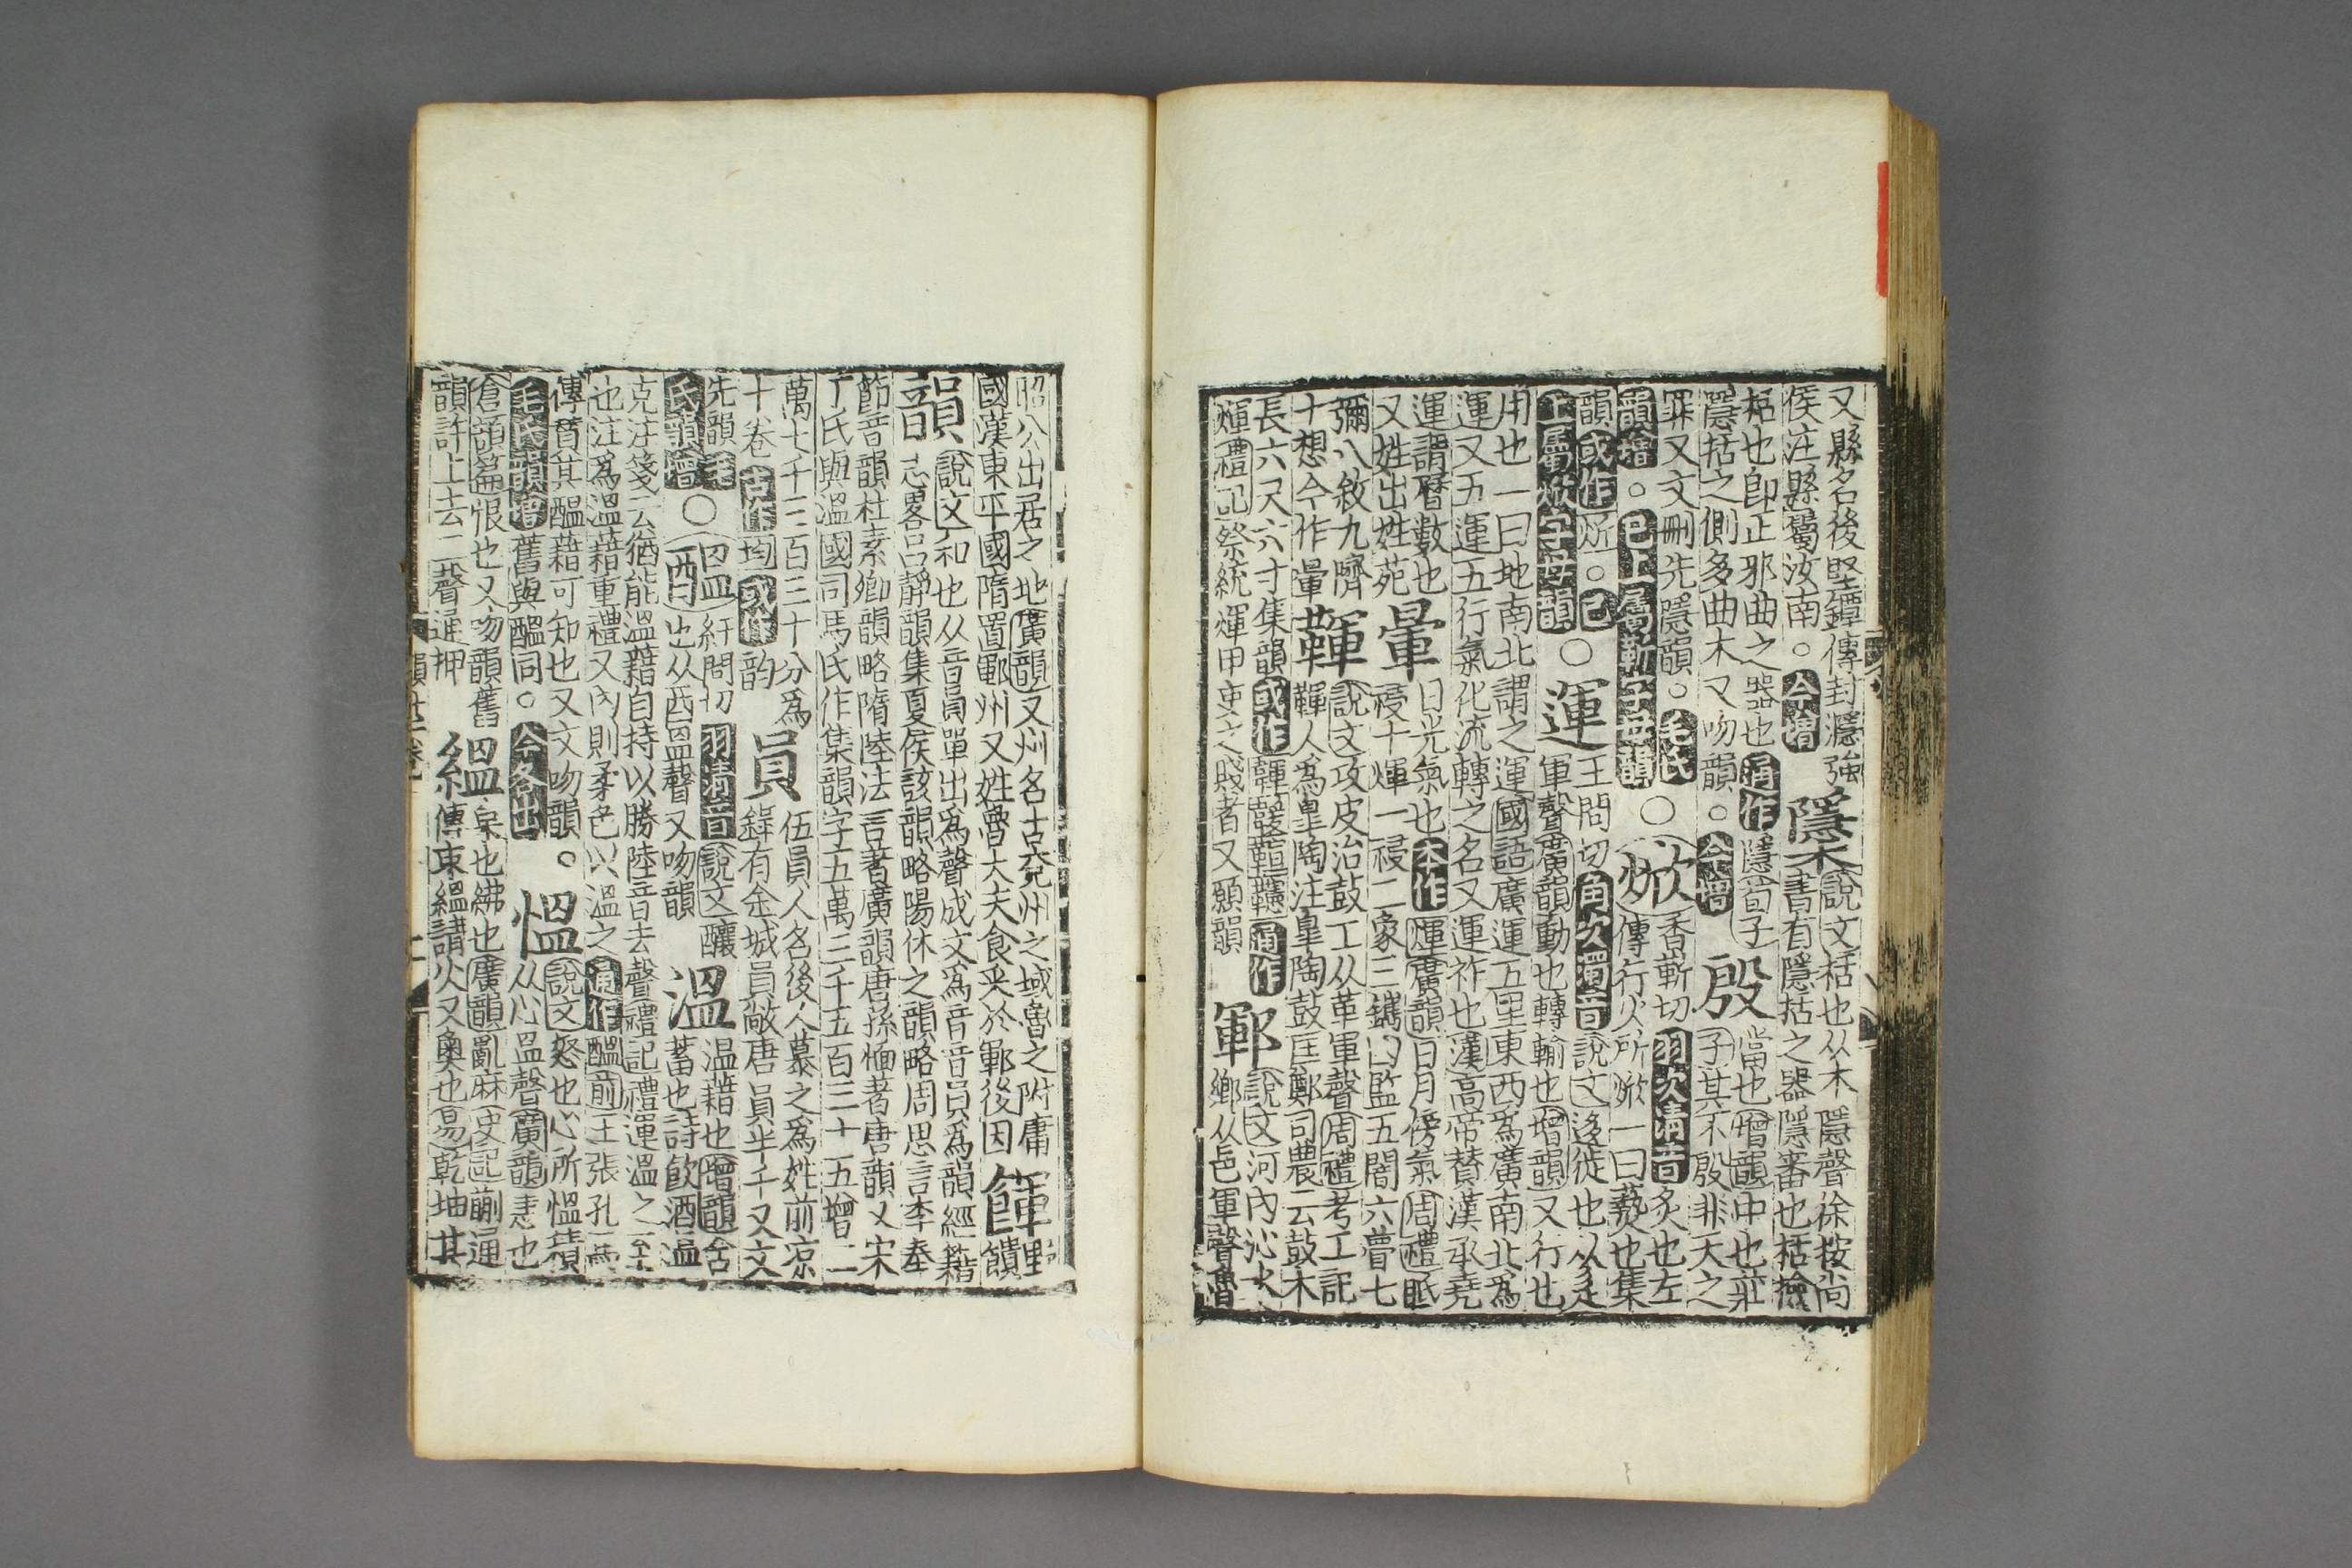 又縣名後堅鐔傳封㶏強
侯注縣屬汝南○今增
檃說文栝也从木隱聲徐按尚
書有隱括之器隱審也栝檢
栝也卽正邪曲之器也通作隱荀子
隱括之側多曲木又吻韻○今增
殷當也增韻中也莊
子其不殷非天之
罪又文刪先隱韻○毛氏
韻增○已上屬靳字母韻
○焮香靳切羽次清音炙也左
傳行火所焮一曰爇也集
韻或作炘○已
上屬焮字母韻
○運王問切角次濁音說文迻徙也从辵
軍聲廣韻動也轉輸也增韻又行也
用也一曰地南北謂之運國語廣運五里東西爲廣南北爲
運又五運五行氣化流轉之名又運祚也漢高帝贊漢承堯
運謂曆數也
又姓出姓苑
暈日光氣也本作煇廣韻日月傍氣周禮眂
祲十煇一祲二象三鑴四監五闇六瞢七
彌八敘九隮
十想今作暈
鞸說文攻皮治鼓工从革軍聲周禮考工記
鞸人爲皐陶注皐陶鼓匡鄭司農云鼓木
長六尺六寸集韻或作韗通作
煇禮記祭統煇甲吏之賤者又願韻
鄆說文河內沁水
鄉从邑軍聲魯
昭公出居之地廣韻又州名古兗州之域魯之附庸
國漢東平國隋置鄆州又姓魯大夫食采於鄆後因
餫野
饋
韻說文和也从音員單出爲聲成文爲音音員爲韻經籍
志畧呂靜韻集夏侯該韻略陽休之韻略周思言李奉
節音韻杜素卿韻略隋陸法言著廣韻唐孫愐著唐韻又宋
丁氏與溫國司馬氏作集韻字五萬三千五百三十五增二
萬七千三百三十分爲
十卷古作均或作韵
員伍員人名後人慕之爲姓前凉
錄有金城員敞唐員半千又文
先韻毛
氏韻增
○醞紆問切羽清音說文釀
也从酉昷聲又吻韻
溫温藉也增韻含
蓄也詩飲酒溫
克注箋云猶能溫藉自持以勝陸音去聲禮記禮運溫之至
也注爲溫藉重禮又內則柔色以溫之通作醞前王張孔馬
傳贊其醞藉可知也又文吻韻○
毛氏韻增舊與醞同○今各出
慍說文怒也心所慍積
从心昷聲廣韻恚也
倉頡篇恨也又吻韻舊
韻許上去二聲通押
縕枲也紼也廣韻亂麻史記蒯通
傳束縕請火又奧也易乾坤其